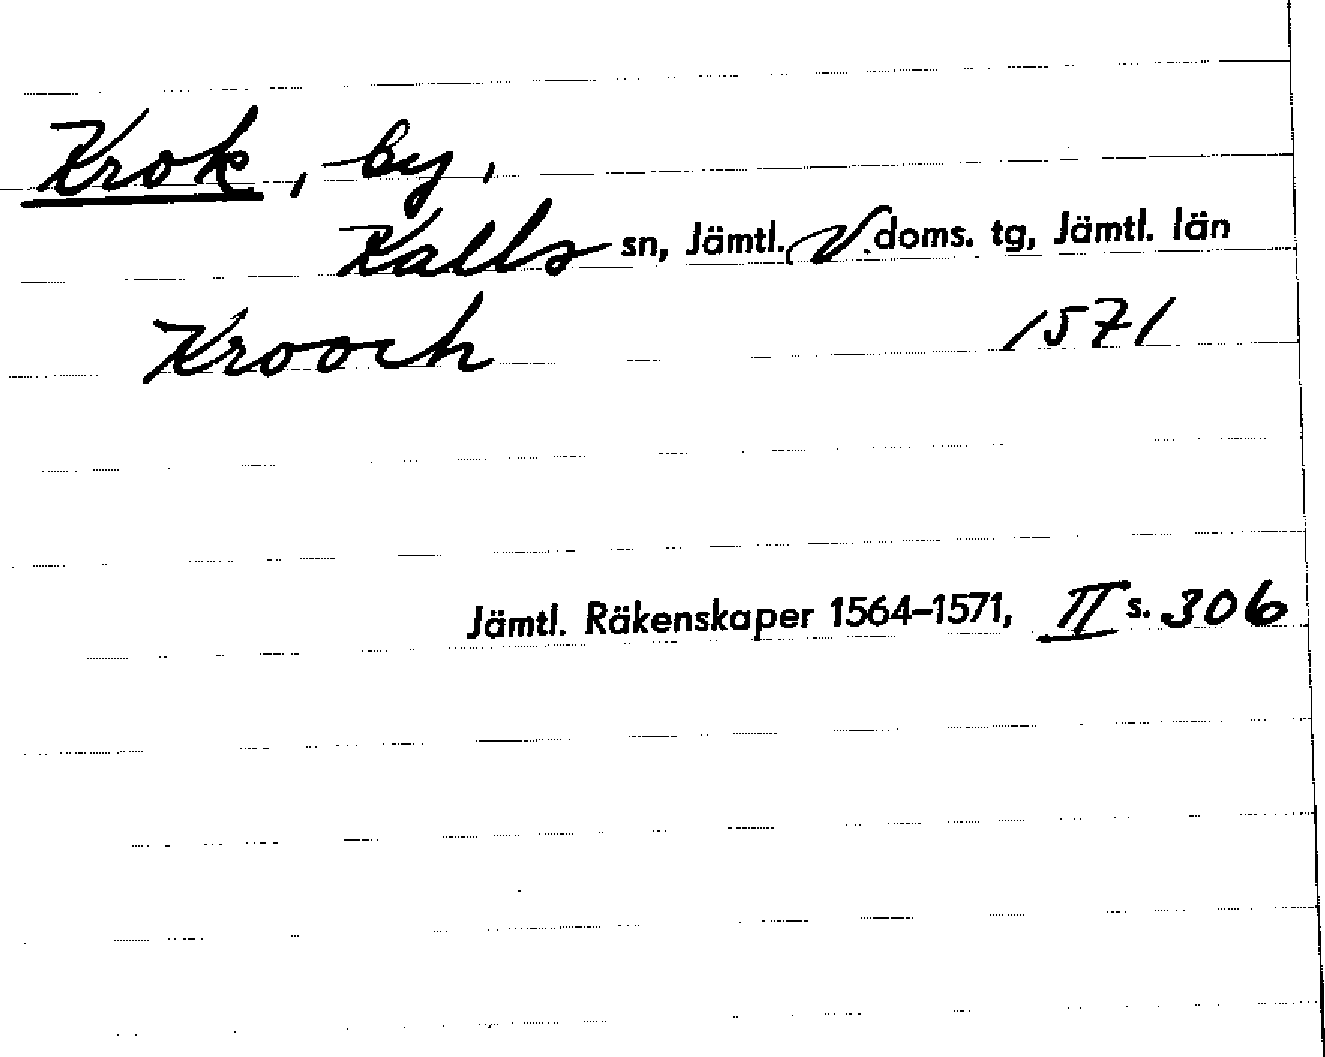 Krok, by,
Kalls sn, Jämtl. V. doms. tg, Jämtl. län
Krooch 1571
Jämtl. Räkenskaper 1564-1571, II s. 306